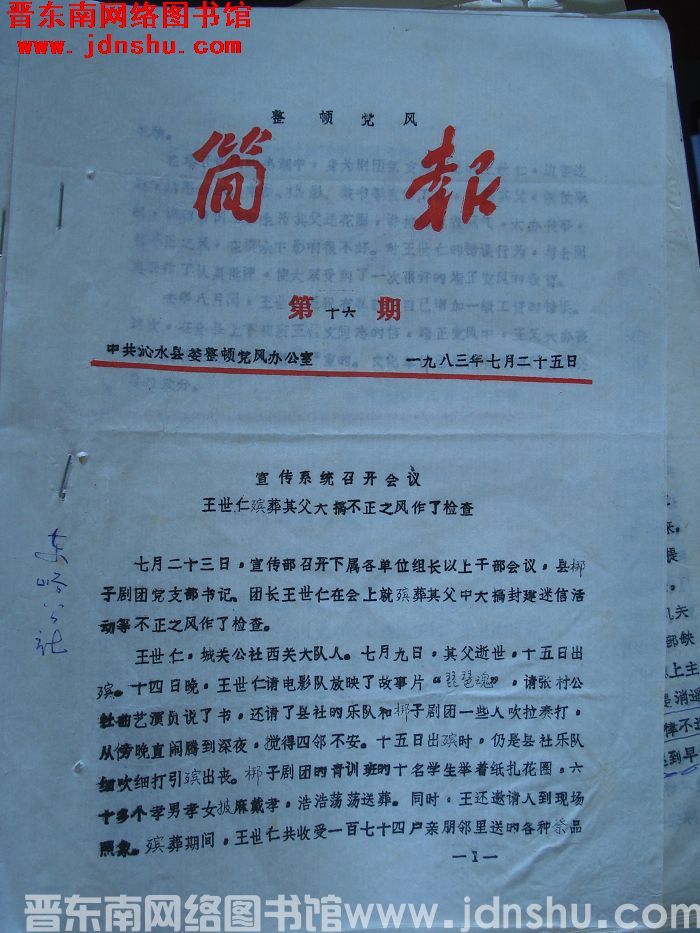 晋东南网络图书馆
www.jdnshu.com
整顿党风
简报
第十六期
中共沁水县委整顿党风办公室 一九八三年七月二十五日
宣传系统召开会议
王世仁殡葬其父大搞不正之风作了检查
七月二十三日，宣传部召开下属各单位组长以上干部会议，县梆
子剧团党支部书记。团长王世仁在会上就殡葬其父中大搞封建迷信活
动等不正之风作了检查。
王世仁，城关公社西关大队人。七月九日，其父逝世，十五日出
殡。十四日晚，王世仁请电影队放映了故事片“琵琶魂”，请张村公
社曲艺演员说了书，还请了县社的乐队和梆子剧团一些人吹拉奏打，
从傍晚直闹腾到深夜，搅得四邻不安。十五日出殡时，仍是县社乐队
细吹细打引殡出丧。梆子剧团的青训班的十名学生举着纸扎花圈，六
十多个孝男孝女披麻戴孝，浩浩荡荡送葬。同时，王还邀请人到现场
照象。殡葬期间，王世仁共收受一百七十四户亲朋邻里送的各种祭品
—1—
公社
来。
机关
部缺
以上主
是消
律不
到早
晋东南网络图书馆www.jdnshu.com